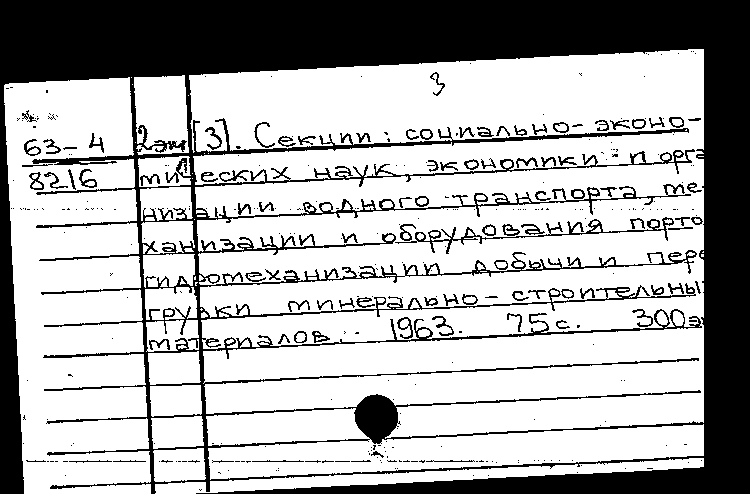 3
63-4 2эк [3]. Секции: социально-эконо-
8216 мических наук, экономики и орга
низации водного транспорта, ме-
ханизации и оборудования порто
гидромеханизации добычи и пере
грузки минерально-строительны
материалов. 1963. 75с. 300э